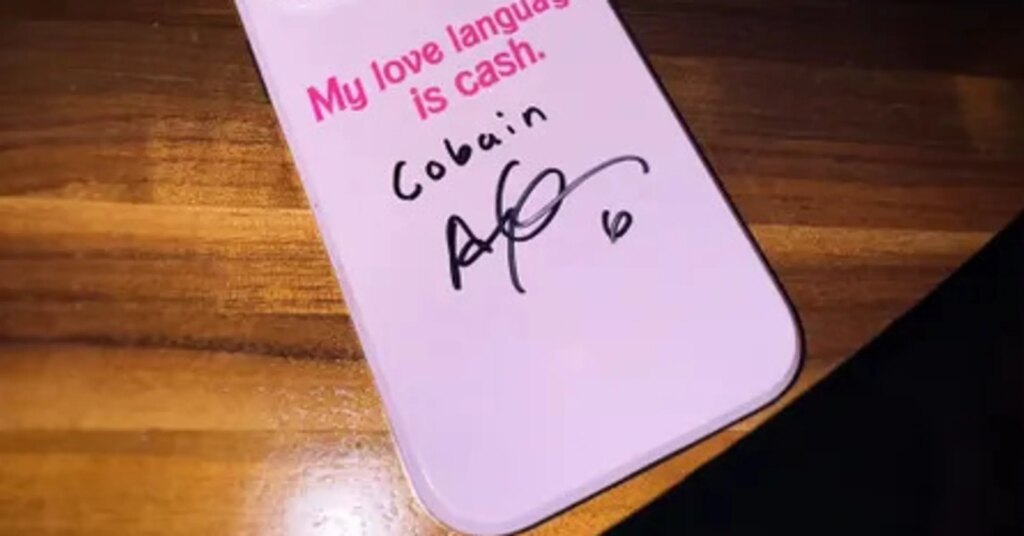 My love languag
is cash.
Cobain
6